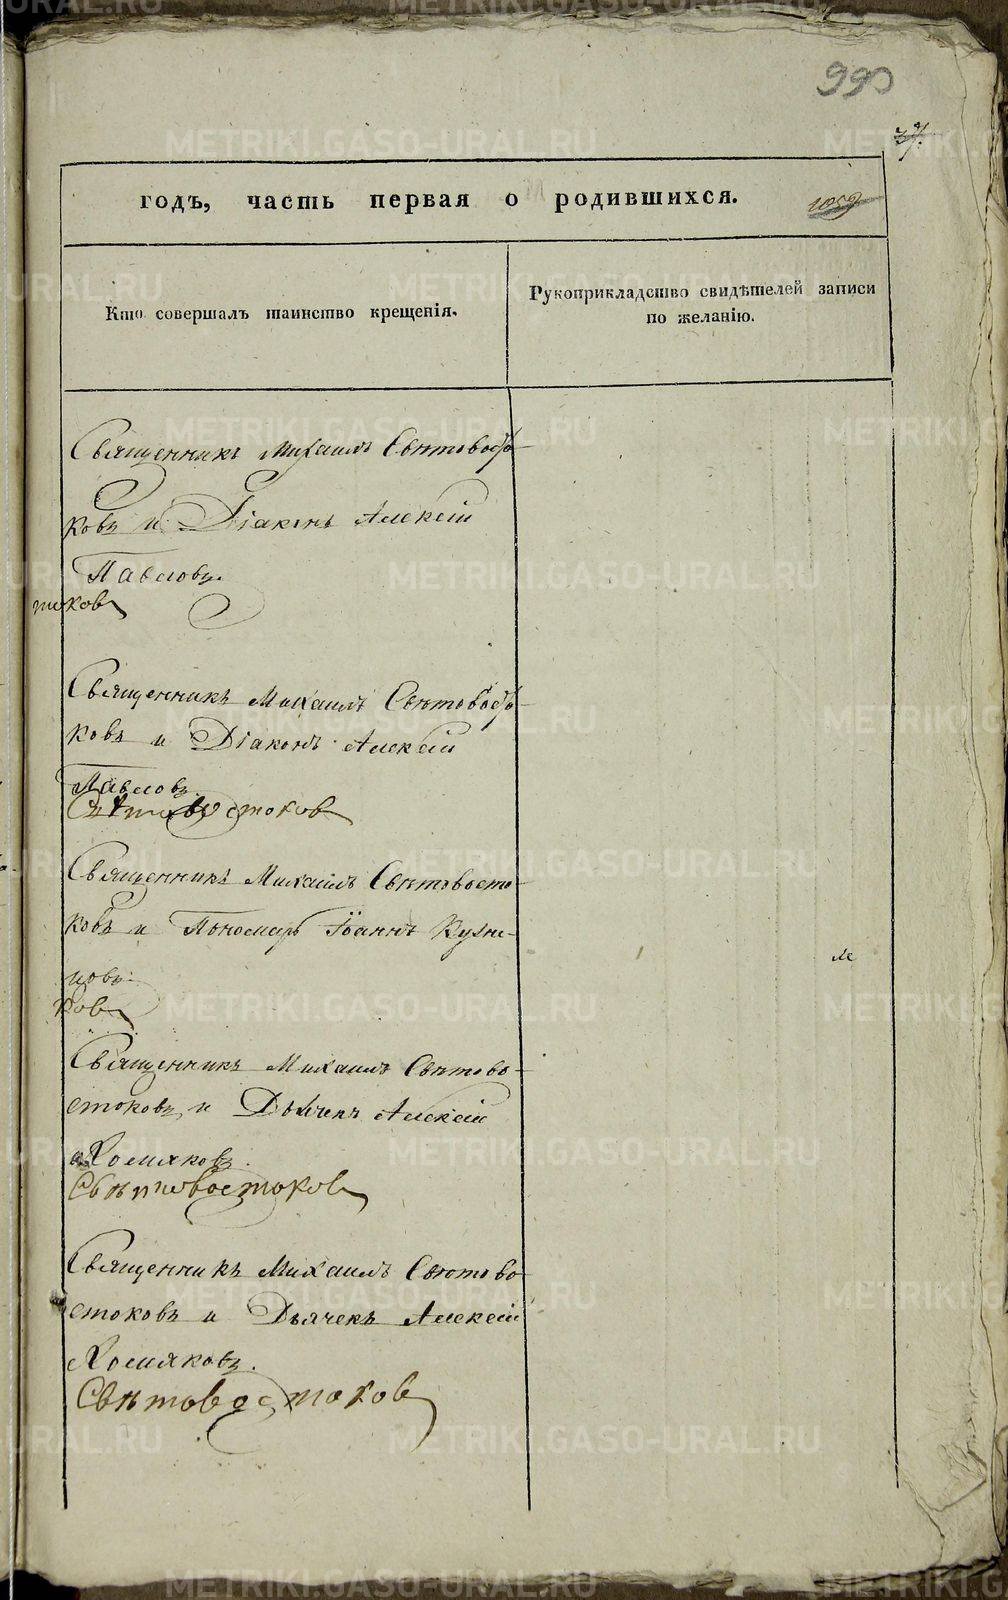 990
37.
годъ, часть первая о родившихся.
1059
Кто совершалъ таинство крещенія.
Рукоприкладство свидѣтелей записи
по желанію.
Священникъ Михаилъ Свѣтовосто-
ковъ и Діаконъ Алексій
Павловъ.
токов
Священникъ Михаилъ Свѣтовосто-
ковъ и Діаконъ Алексій
Павловъ.
Свѣтовостоков
Священникъ Михаилъ Свѣтовосто-
ковъ и Пономарь Іоаннъ Кузне-
цовъ.
ков
Священникъ Михаилъ Свѣтово-
стоковъ и Дьячекъ Алексій
Хомяковъ.
Свѣтовостоков
Священникъ Михаилъ Свѣтово-
стоковъ и Дьячекъ Алексій
Хомяковъ.
Свѣтовостоков
METRIKI.GASO-URAL.RU